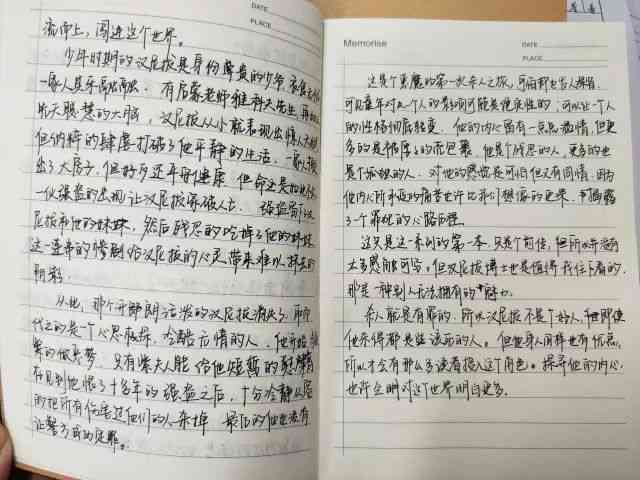 DATE
PLACE
流而上，闯进这个世界。
少年时期的汉尼拔是身份尊贵的少爷，衣食无忧
一家人其乐融融。有启蒙老师雅科夫先生，再加上
天聪慧的大脑，汉尼拔从小就表现出惊人
但纳粹的肆虐打破了他平静的生活，一家人
出了大房子，但好歹还平安健康，但命
一伙强盗的出现让汉尼拔家破人亡。强盗
尼拔和他的妹妹，然后残忍的吃掉了他的妹妹
这一连串的惨剧给汉尼拔的心灵带来难以抹去的
阴影
从此，那个开朗活泼的汉尼拔消失了，取而
代之的是一个心思敏感，冷酷无情的人，他开始
的做噩梦，只有紫夫人能给他短暂的慰藉
在见到他恨了十多年的强盗之后，十分冷静从容
的把所有伤害过他们的人杀掉，最后的他也没有
让警方有的定罪。
Memorise
DATE
PLACE
这是个恶魔的第一次杀人之旅，可怕那也令人惋惜，
可见童年对一个人的影响可能是绝杀性的，可以让一个人
的性格彻底转变。他的内心留有一点点激情，但更
多的是被厚的包裹，他是个残忍的人，更多的也
是个孤独的人，对他的感觉是可怕但又有同情，因为
他内心所承受的痛苦也许比我们想象的更深，
了一个罪犯的心路历程。
这只是这一系列的第一本，只是个前传，但所以并没有
太多恩怨可写，但汉尼拔博士也是值得我往下看的，
那是一种别人无法拥有的魅力。
杀人都是有罪的，所以汉尼拔不是个好人，即使
他杀得都是些该死的人。但他身上同样也有优点，
所以才会有那么多读者投入这个角色。探寻他的内心，
也许会明对这个世界明白更多。